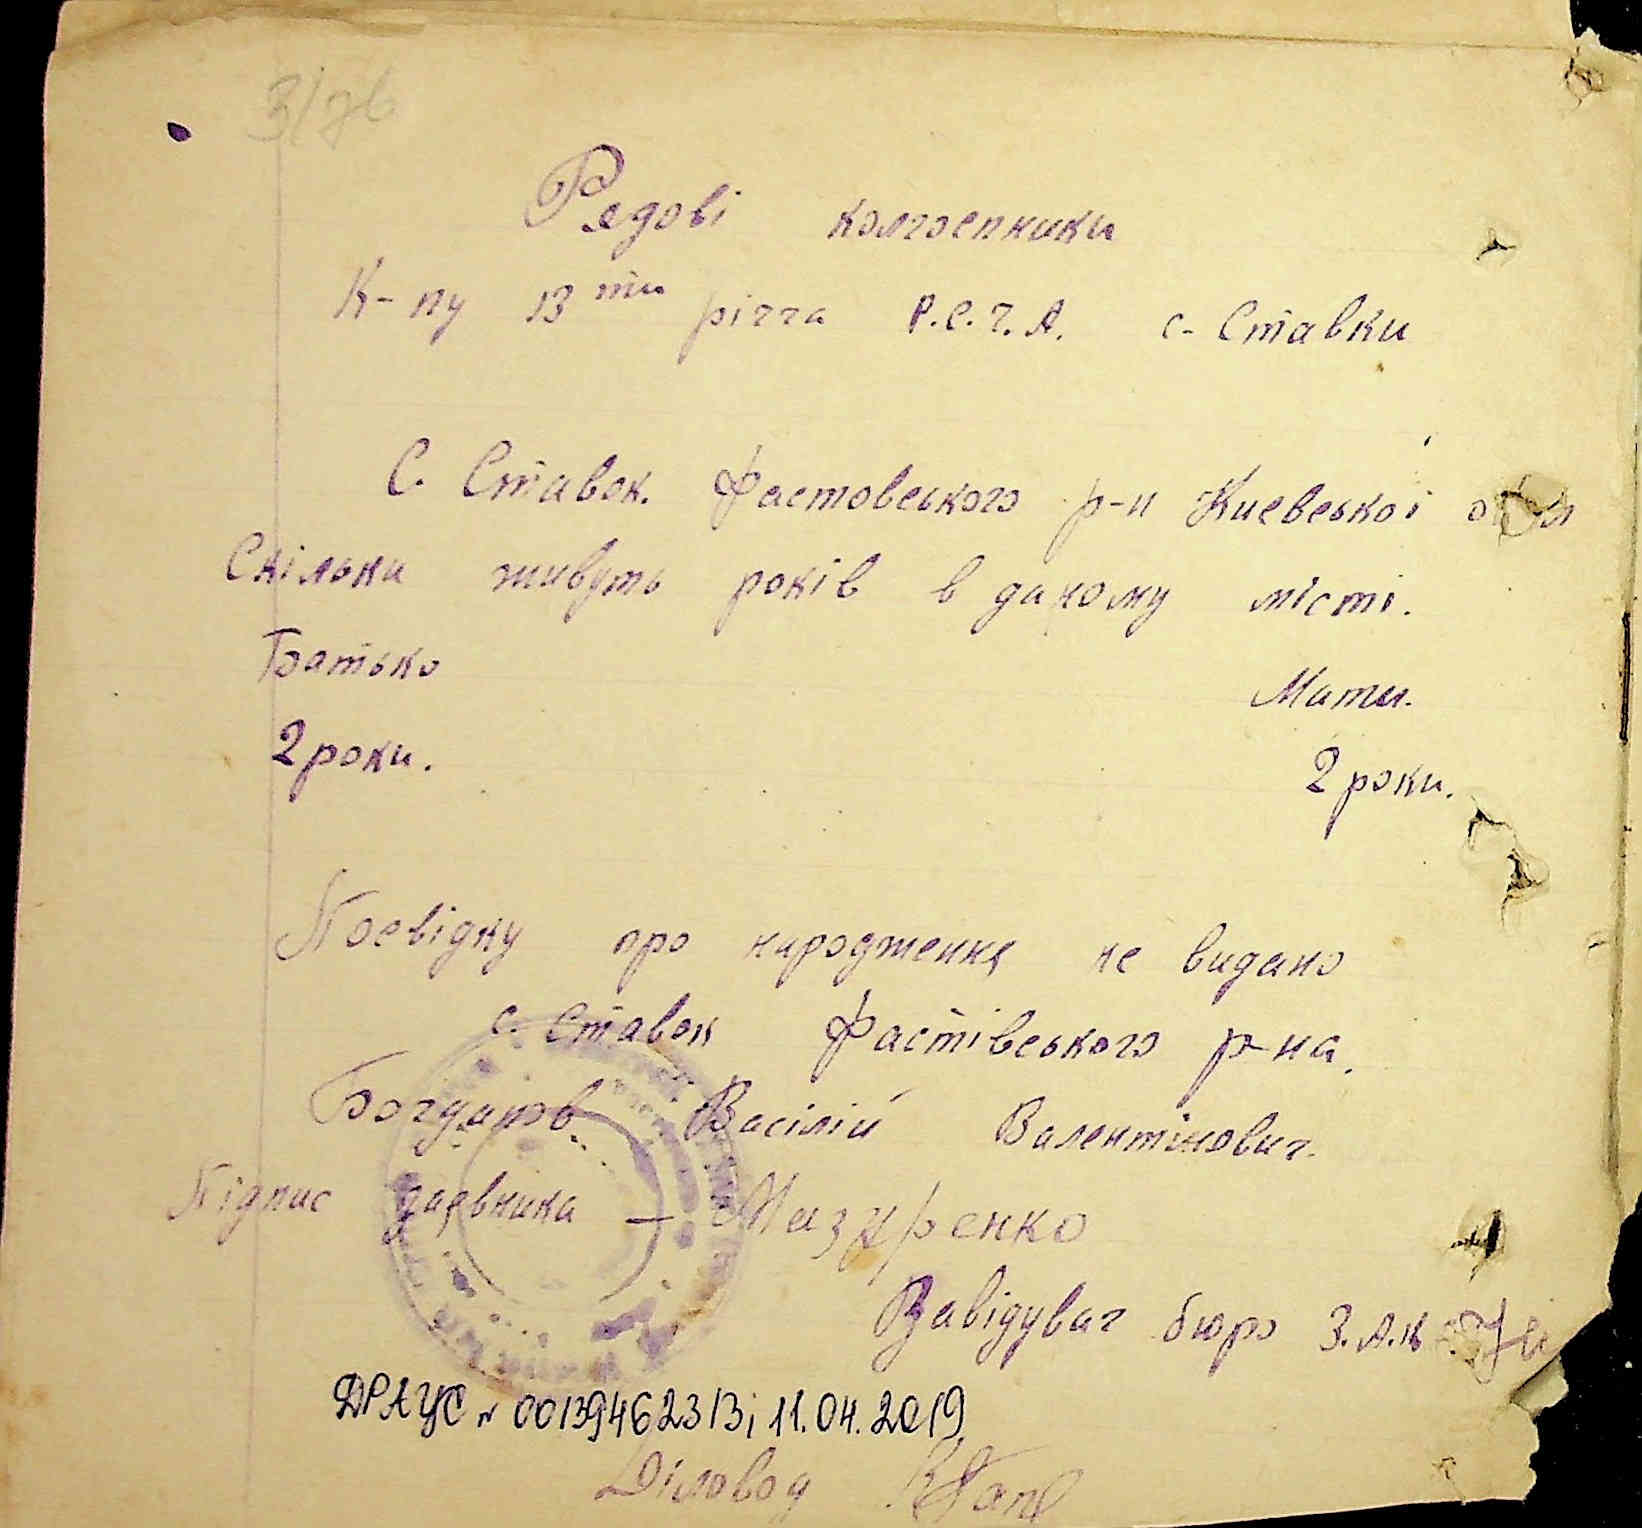 Рядові колгоспники
К-пу 13 ти річча Р.С.Ч.А. с-Ставки
С. Ставок. Фастовського р-н Киевської
Скільки живуть років в даному місті.
Батько Мати.
2 роки. 2 роки.
Посвідку про народження не видано
с. Ставок Фастівського р-на.
Богданов Василій Валентінович.
Підпис заявника – Мазуренко
Завідувач бюро З.А.Г.
ДРАЦС № 00139462313; 11.04.2019
Діловод